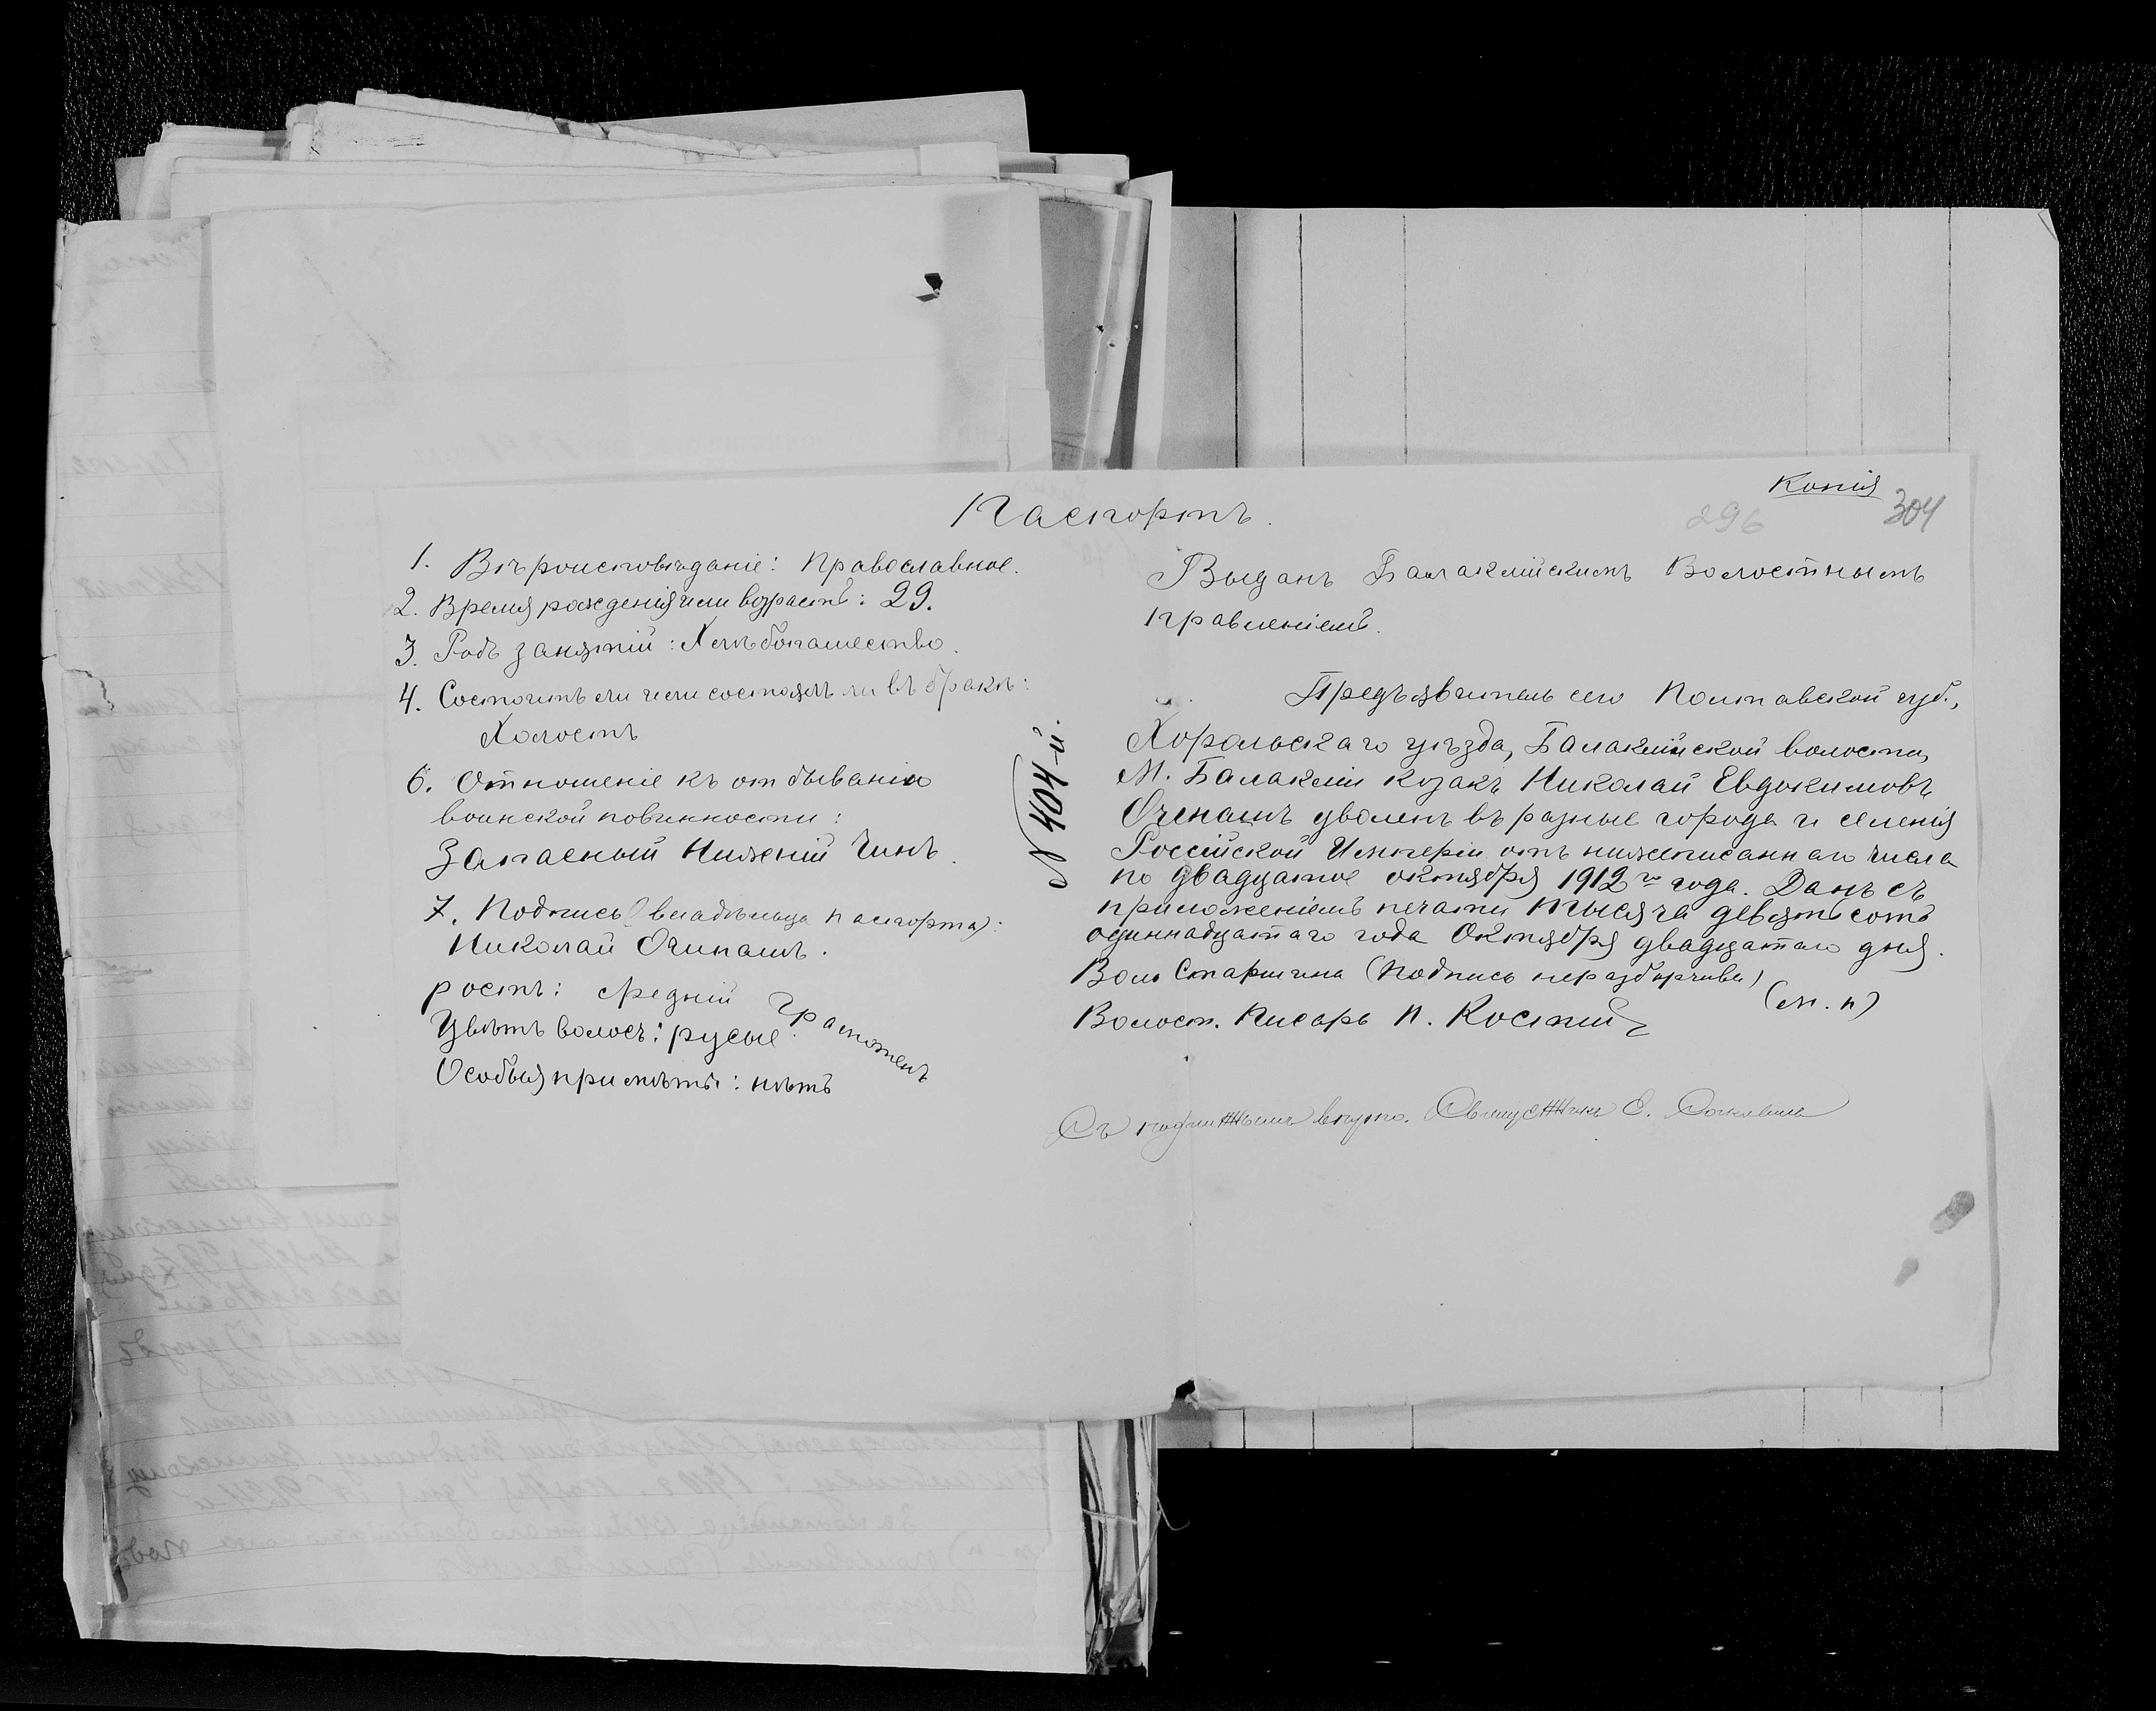 Копія
296 304
Паспортъ.
1. Вѣроисповѣданіе: Православное.
2. Время рожденія или возрастъ: 29.
3. Родъ занятій: Хлѣбопашество.
4. Состоитъ ли или состоялъ ли въ бракѣ:
Холостъ
6. Отношеніе къ отбыванію
воинской повинности:
Запасный Нижній Чинъ.
7. Подпись (владѣльца паспорта):
Николай Очинашъ.
ростъ: средній
Цвѣтъ волосъ: русые.
Грамотенъ
Особыя примѣты: нѣтъ
Выданъ Балаклійскимъ Волостнымъ
правленіемъ.
Предъявитель сего Полтавской губ.,
Хорольскаго уѣзда, Балаклійской волости,
М. Балакліи козакъ Николай Евдокимовъ
Оченашъ уволенъ въ разные города и селенія
Россійской Имперіи отъ нижеписаннаго числа
по двадцатое октября 1912 го года. Данъ съ
приложеніемъ печати тысяча девятьсотъ
одиннадцатаго года Октября двадцатаго дня.
Вол. Старшина (подпись неразборчива)
(м. п)
Волост. Писарь П. Костий
№ 404-й.
Съ подлиннымъ вѣрно. Священникъ С.